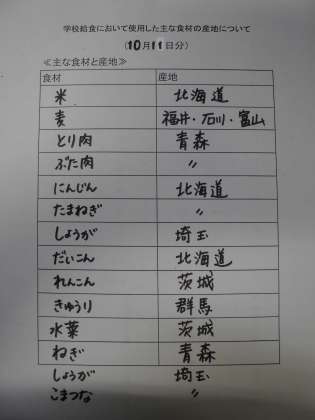 学校給食において使用した主な食材の産地について
(10月11日分)
≪主な食材と産地≫
食材 産地
米 北海道
麦 福井・石川・富山
とり肉 青森
ぶた肉 〃
にんじん 北海道
たまねぎ 〃
しょうが 埼玉
だいこん 北海道
れんこん 茨城
きゅうり 群馬
水菜 茨城
ねぎ 青森
しょうが 埼玉
こまつな 〃